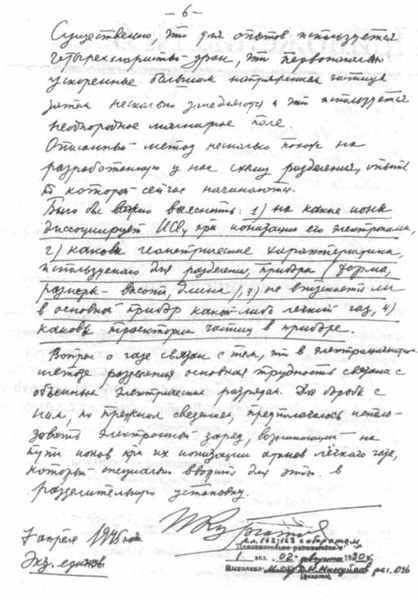 – 6 –
Существенно, что для опытов используется
четыреххлористый уран, что первоначально
ускоренные большим напряжением частицы
затем несколько замедляются и что используется
неоднородное магнитное поле.
Описанный метод несколько похож на
разработанную у нас схему разделения, опыты
с которой сейчас начинаются.
Было бы важно выяснить: 1) на какие ионы
диссоциирует при ионизации его электронами,
2) каковы геометрические характеристики,
используемого для разделения, прибора (форма,
размеры – высота, длина), 3) не впускается ли
в основной прибор какой-либо легкий газ, 4)
каковы траектории частиц в приборе.
Вопрос о газе связан с тем, что в электромагнитном
методе разделения основная трудность связана с
объемным электрическим разрядом. Для борьбы с
ним, по прежним сведениям, предполагалось исполь-
зовать электронный заряд, возникающий на
пути ионов при их ионизации атомов легкого газа,
который специально вводить для этого в
разделительную установку.
7 апреля 1945 года
Экз. единств.
1 экз. 02 августа